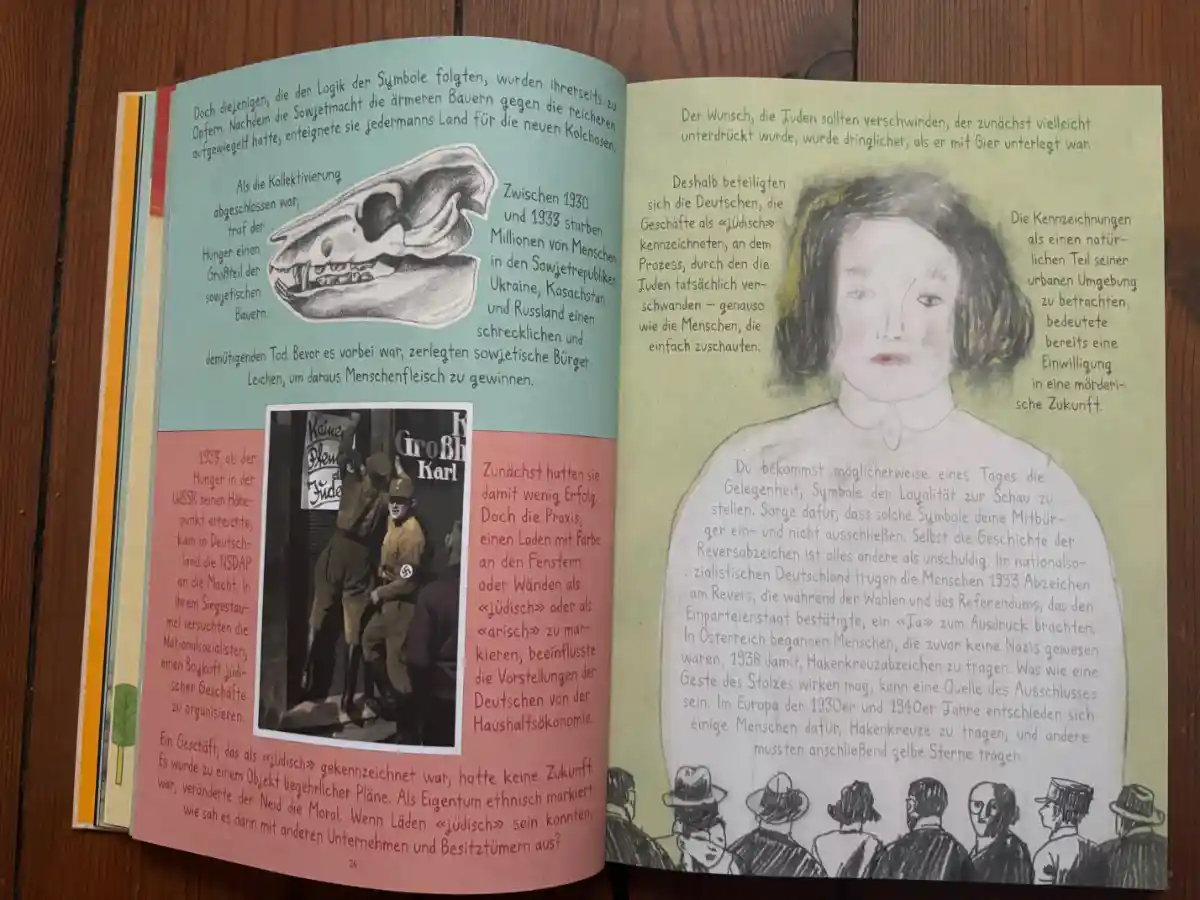 Doch diejenigen, die der Logik der Symbole folgten, wurden ihrerseits zu
Opfern. Nachdem die Sowjetmacht die ärmeren Bauern gegen die reicheren
aufgewiegelt hatte, enteignete sie jedermanns Land für die neuen Kolchosen.
Als die Kollektivierung
abgeschlossen war,
traf der
Hunger einen
Großteil der
sowjetischen
Bauern.
Zwischen 1930
und 1933 starben
Millionen von Menschen
in den Sowjetrepubliken
Ukraine, Kasachstan
und Russland einen
schrecklichen und
demütigenden Tod. Bevor es vorbei war, zerlegten sowjetische Bürger
Leichen, um daraus Menschenfleisch zu gewinnen.
1933, als der
Hunger in der
UdSSR seinen Höhe-
punkt erreichte,
kam in Deutsch-
land die NSDAP
an die Macht. In
ihrem Siegestau-
mel versuchten die
Nationalsozialisten,
einen Boykott jüdi-
scher Geschäfte
zu organisieren.
Keinen
Juden
K
Großh
Karl
Zunächst hatten sie
damit wenig Erfolg.
Doch die Praxis,
einen Laden mit Farbe
an den Fenstern
oder Wänden als
«jüdisch» oder als
«arisch» zu mar-
kieren, beeinflusste
die Vorstellungen der
Deutschen von der
Haushaltsökonomie.
Ein Geschäft, das als «jüdisch» gekennzeichnet war, hatte keine Zukunft.
Es wurde zu einem Objekt begehrlicher Pläne. Als Eigentum ethnisch markiert
war, veränderte der Neid die Moral. Wenn Läden «jüdisch» sein konnten,
wie sah es dann mit anderen Unternehmen und Besitztümern aus?
24
Der Wunsch, die Juden sollten verschwinden, der zunächst vielleicht
unterdrückt wurde, wurde dringlicher, als er mit Gier unterlegt war.
Deshalb beteiligten
sich die Deutschen, die
Geschäfte als «jüdisch»
kennzeichneten, an dem
Prozess, durch den die
Juden tatsächlich ver-
schwanden – genauso
wie die Menschen, die
einfach zuschauten.
Die Kennzeichnungen
als einen natür-
lichen Teil seiner
urbanen Umgebung
zu betrachten,
bedeutete
bereits eine
Einwilligung
in eine mörderi-
sche Zukunft.
Du bekommst möglicherweise eines Tages die
Gelegenheit, Symbole der Loyalität zur Schau zu
stellen. Sorge dafür, dass solche Symbole deine Mitbür-
ger ein- und nicht ausschließen. Selbst die Geschichte der
Reversabzeichen ist alles andere als unschuldig. Im nationalso-
zialistischen Deutschland trugen die Menschen 1933 Abzeichen
am Revers, die während der Wahlen und des Referendums, das den
Einparteienstaat bestätigte, ein «Ja» zum Ausdruck brachten.
In Österreich begannen Menschen, die zuvor keine Nazis gewesen
waren, 1938 damit, Hakenkreuzabzeichen zu tragen. Was wie eine
Geste des Stolzes wirken mag, kann eine Quelle des Ausschlusses
sein. Im Europa der 1930er und 1940er Jahre entschieden sich
einige Menschen dafür, Hakenkreuze zu tragen, und andere
mussten anschließend gelbe Sterne tragen.